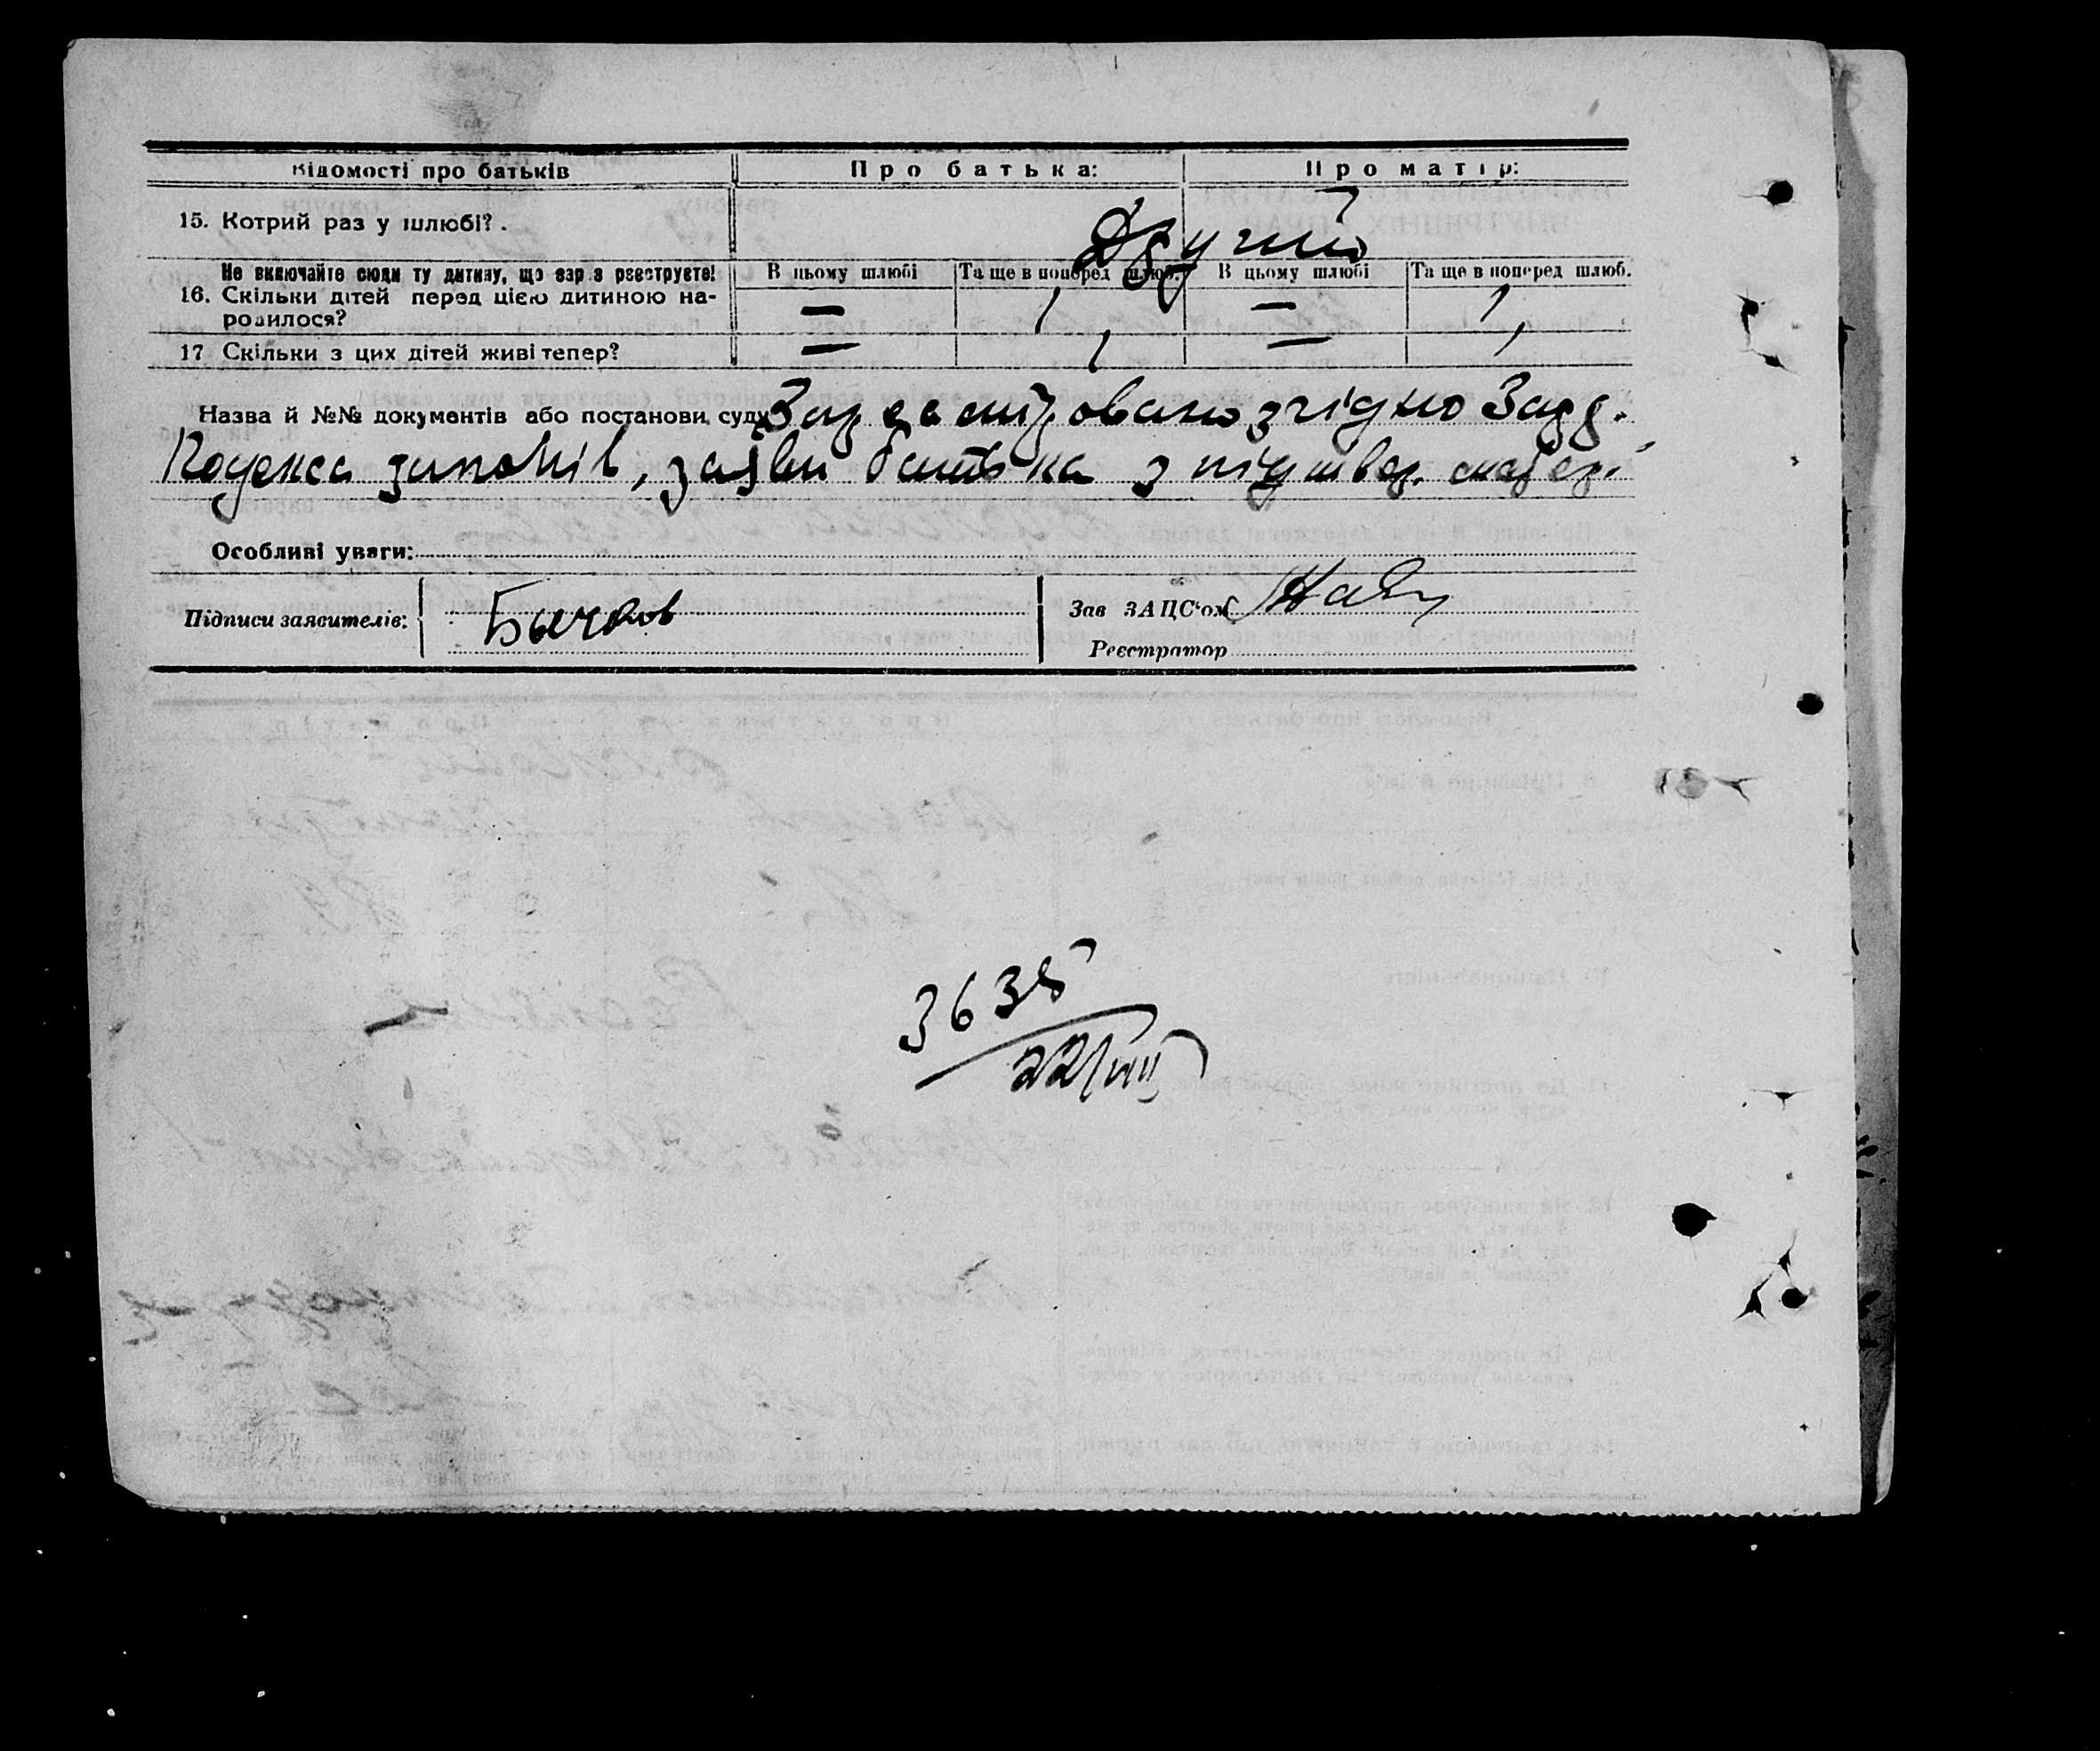 Відомості про батьків Про батька: Про матір:
15. Котрий раз у шлюбі? . Другий
Не включайте сюди ту дитину, що зараз реєструєте! В цьому шлюбі Та ще в поперед шлюб. В цьому шлюбі Та ще в поперед шлюб.
16. Скільки дітей перед цією дитиною на-
родилося? — 1, — 1,
17 Скільки з цих дітей живі тепер? — 1 — 1
Назва й №№ документів або постанови суду згідно
Кодекса законів, заяви батька з підтвер. матері
Особливі уваги:
Підписи заявителів: Бычков Зав ЗАЦС'ом
Реєстратор
3635
22/VIII